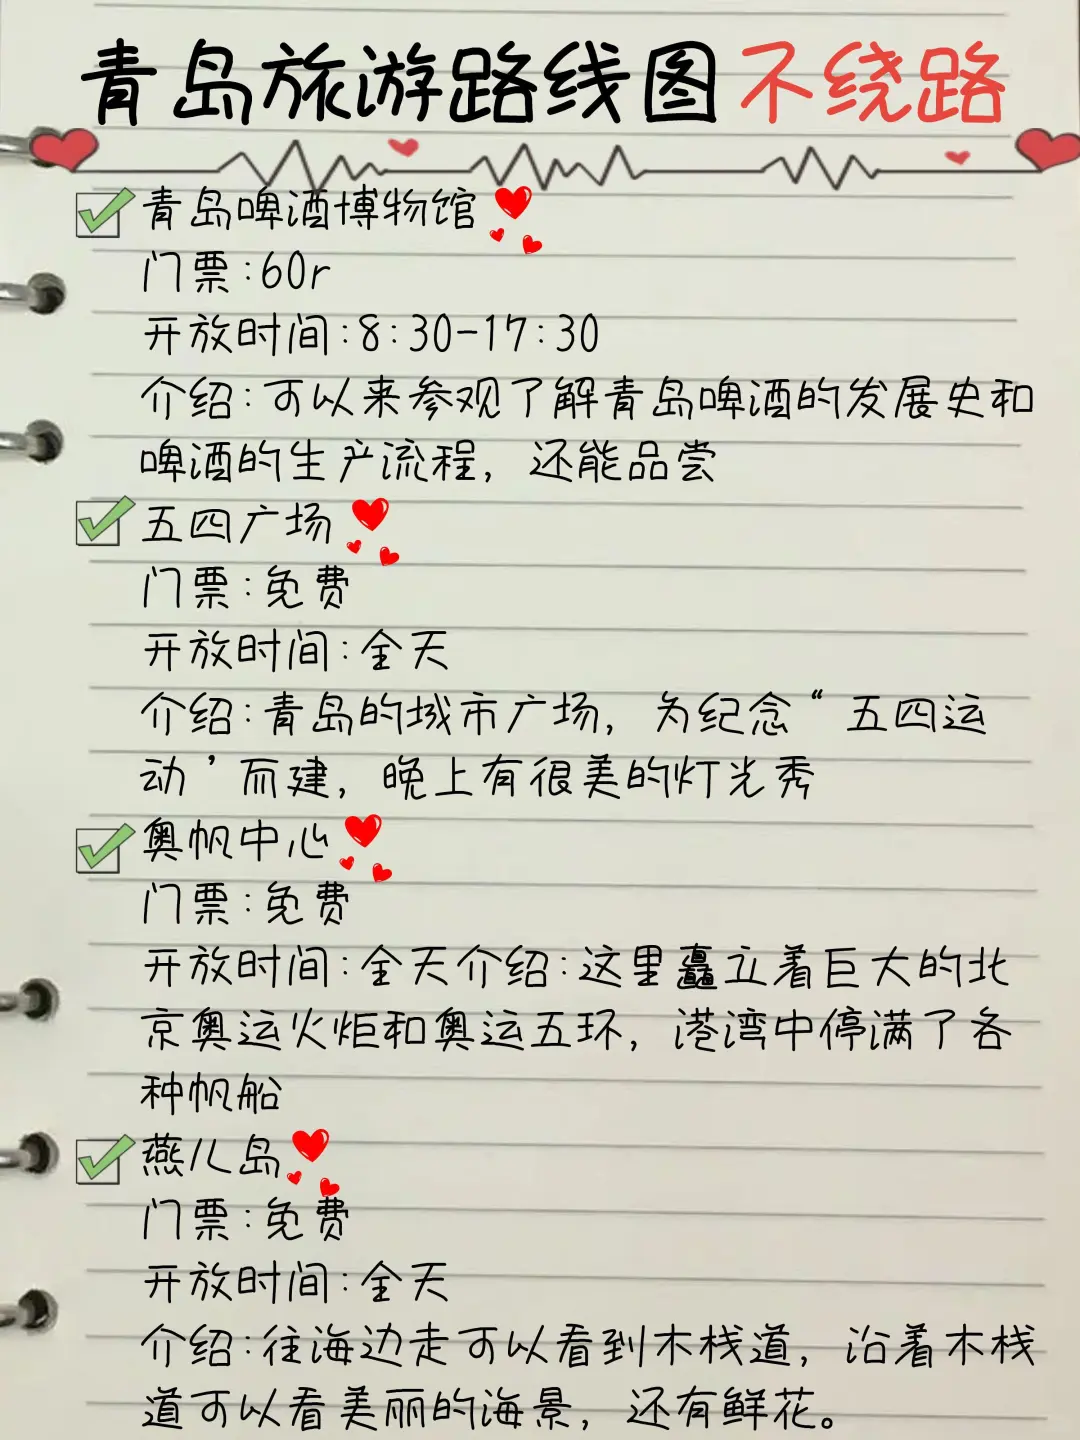 青岛旅游路线图 不绕路
青岛啤酒博物馆
门票:60r
开放时间:8:30-17:30
介绍:可以来参观了解青岛啤酒的发展史和
啤酒的生产流程，还能品尝
五四广场
门票:免费
开放时间:全天
介绍:青岛的城市广场，为纪念“五四运
动’而建，晚上有很美的灯光秀
奥帆中心
门票:免费
开放时间:全天介绍:这里矗立着巨大的北
京奥运火炬和奥运五环，港湾中停满了各
种帆船
燕儿岛
门票:免费
开放时间:全天
介绍:往海边走可以看到木栈道，沿着木栈
道可以看美丽的海景，还有鲜花。